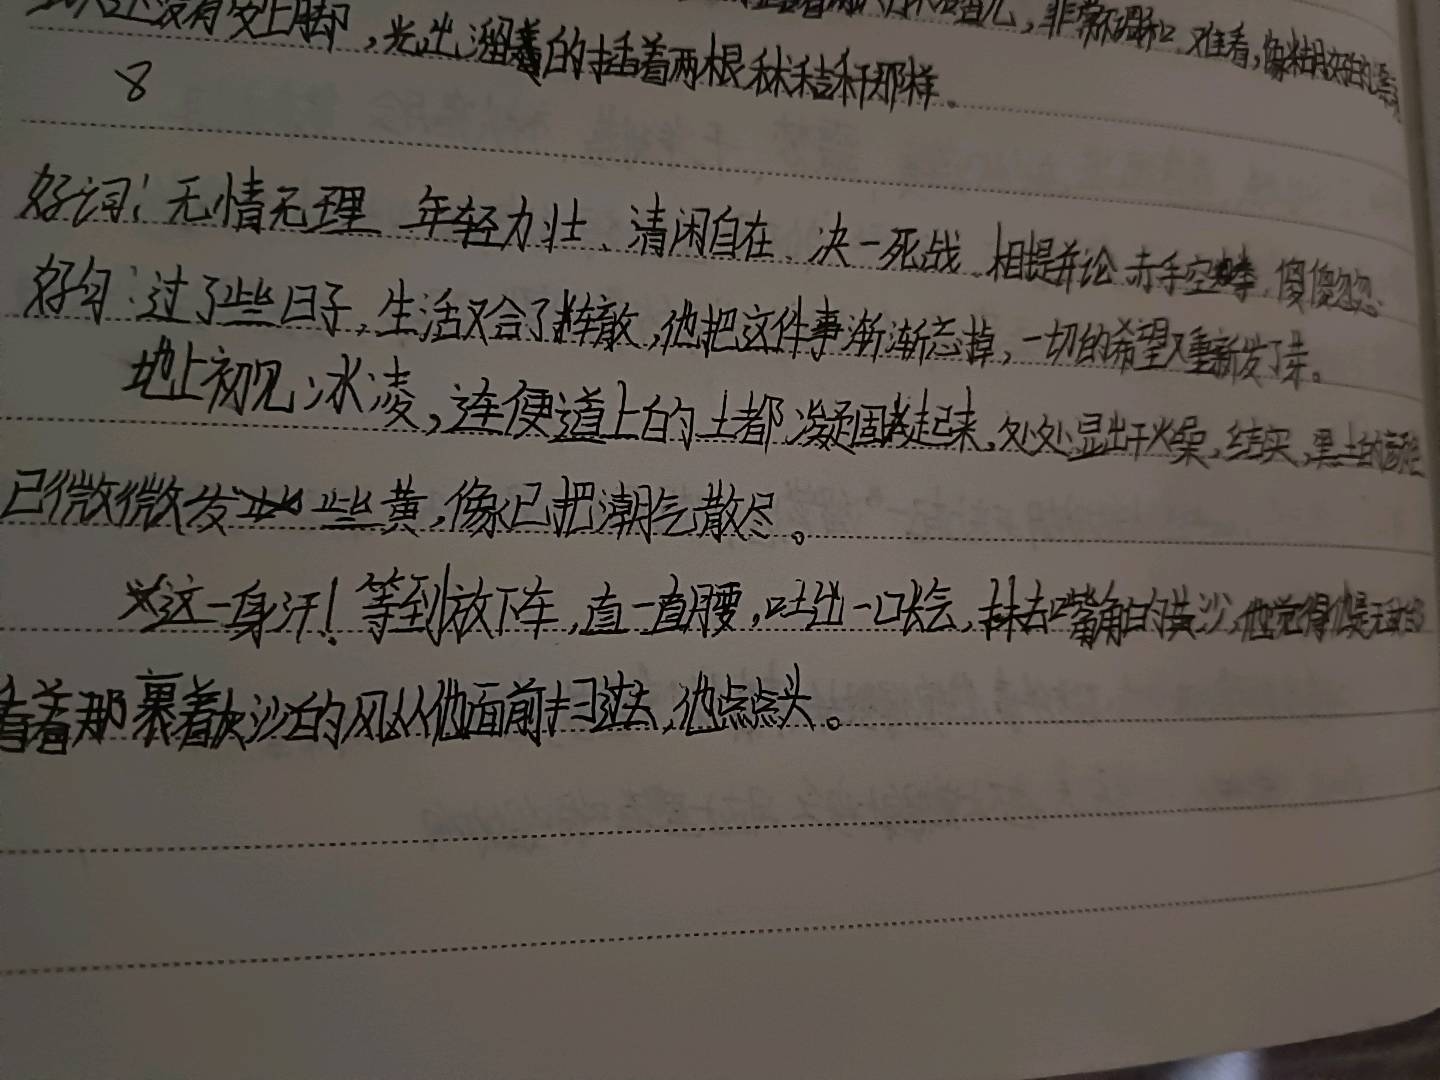 还没有安上脚，光出溜的插着两根秫秸秆那样。
非常不调和，难看，像
8
好词：无情无理 年轻力壮、清闲自在、决一死战、相提并论、赤手空拳、傻傻忽忽、
好句：过了些日子，生活又合了辙，他把这件事渐渐忘掉，一切的希望又重新发了芽。
地上初见冰凌，连便道上的土都凝固起来，处处显出干燥，结实，黑土的颜色
已微微发些黄，像已把潮气散尽。
这一身汗！等到放下车，直一直腰，吐出一口长气，抹去嘴角的黄沙，他觉得他是无敌的
看着那裹着灰沙的风从他面前扫过去，他点点头。